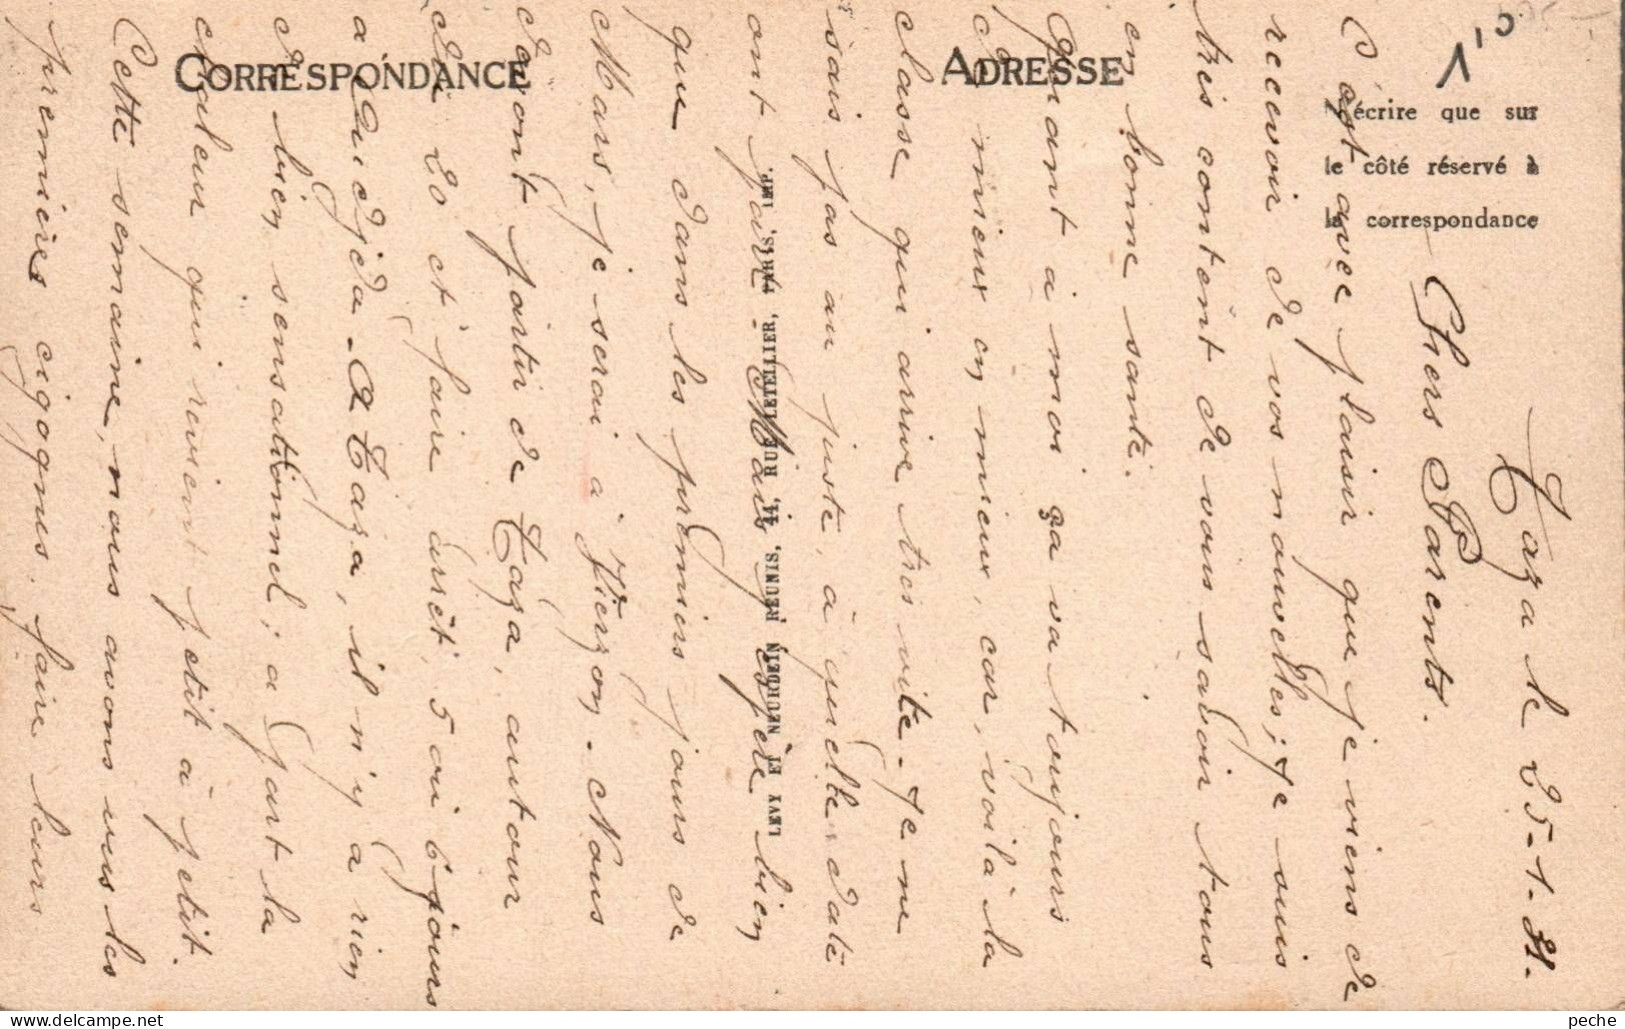 CORRESPONDANCE
ADRESSE
N'écrire que sur
le côté réservé à
la correspondance
LEVY ET NEURDEIN RÉUNIS, 44, RUE LETELLIER, PARIS, IMP.
Taza le 25-1-31.
Chers Parents.
C'est avec plaisir que je viens de
recevoir de vos nouvelles; je suis
très content de vous savoir tous
en bonne santé.
Quant à moi ça va toujours
de mieux en mieux, car, voilà la
classe qui arrive très vite. Je ne
sais pas au juste, à quelle date
ont part Mais j'espère bien
que dans les premiers jours de
Mars, je serai à Vierzon. Nous
devont partir de Taza, autour
du 20 et faire arrêt, 5 ou 6 jours
a Oudjda. A Taza, il n'y a rien
de bien sensationnel; a part la
chaleur qui revient petit à petit.
Cette semaine, nous avons vus les
premières cigognes. faire leurs
peche